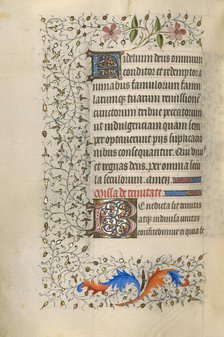 Fidelium deus omnium
conditor et redemptor a
nimabus famulorum famu
larumque tuarum remissione
cunctorum tribue peccatorum
ut indulgenciam quam sem
per optaverunt piis suppli
onibus consequantur. Qui
et regnas deus. per omnia
secula seculorum. amen.
Missa de trinitate.
Benedicta sit trinitas
atque indivisa unitas
confitebimur ei quia fe